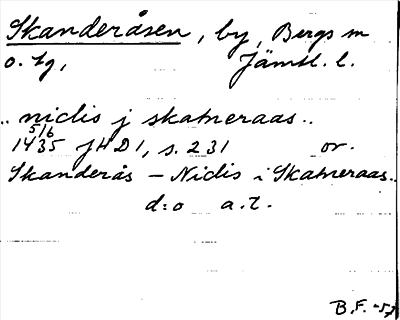 Skanderåsen, by, Bergs sn
o. tg, Jämtl. l.
.. niclis j skatneraas..
5/6
1435 JHD1, s. 231 or.
Skanderås – Niclis i Skatneraas..
d:o a.t.
B.F. -57